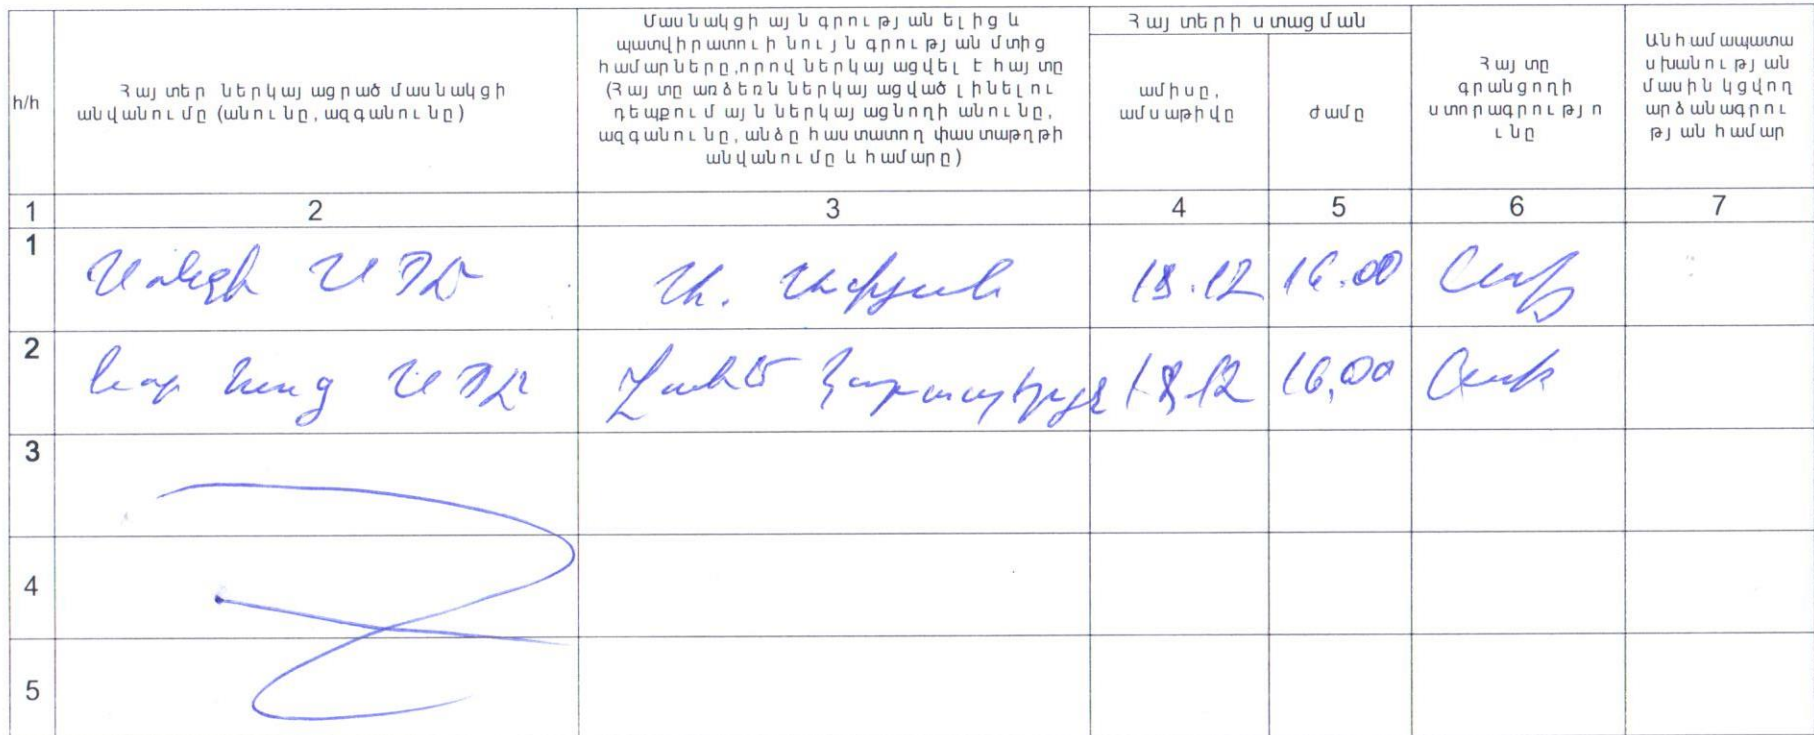 հ/հ
Հայտեր ներկայացրած մասնակցի
անվանումը (անունը, ազգանունը)
Մասնակցի այն գրության ելից և
պատվիրատուի նույն գրության մտից
համարները,որով ներկայացվել է հայտը
(Հայտը առձեռն ներկայացված լինելու
դեպքում այն ներկայացնողի անունը,
ազգանունը, անձը հաստատող փաստաթղթի
անվանումը և համարը)
Հայտերի ստացման
ամիսը,
ամսաթիվը
ժամը
Հայտը
գրանցողի
ստորագրությո
ւնը
Անհամապատա
սխանության
մասին կցվող
արձանագրու
թյան համար
1 2 3 4 5 6 7
1 ՍՊԸ 18.12 16.00
2 ՍՊԸ 18.12 16,00
3
4
5